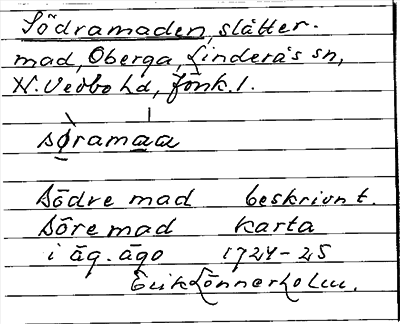 Södramaden, slätter-
mad, Oberga, Linderås sn,
N. Vedbo hd, Jönk. l.
søramaa
Södre mad beskrivn t.
Söre mad karta
i äg. ägo 1724-25
Erik Lönnerholm.